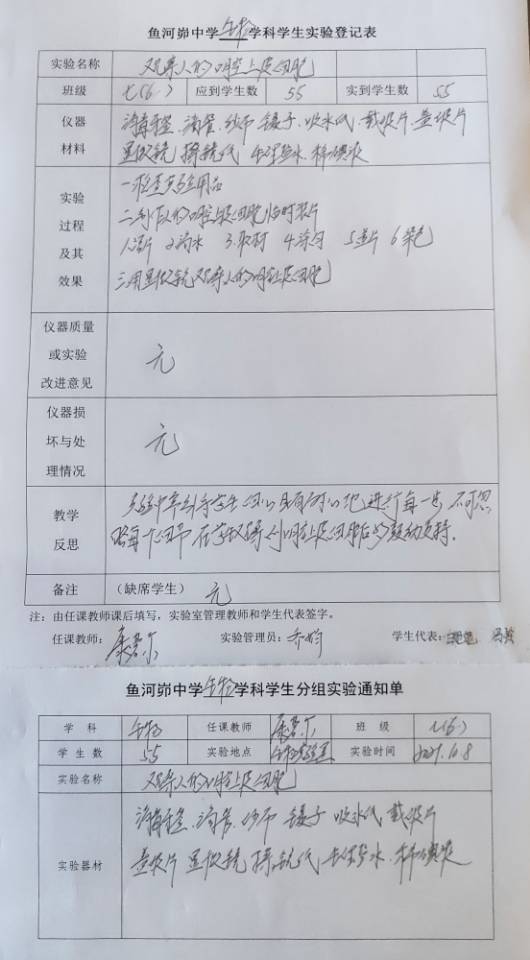 鱼河峁中学生物学科学生实验登记表
实验名称 观察人的口腔上皮细胞
班级 七(6) 应到学生数 55 实到学生数 55
仪器材料 消毒牙签、滴管、纱布 镊子、吸水纸、载玻片、盖玻片
显微镜 擦镜纸 生理盐水、稀碘液
实验过程及其效果 一、检查实验用品
二、制作人的口腔上皮细胞临时装片
1、 2滴水 3.取材 4涂匀 5盖片 6染色
三、用显微镜观察人的口腔上皮细胞
仪器质量或实验改进意见 无
仪器损坏与处理情况 无
教学反思 实验中牵引学生细心且有耐心地进行每一步 不可忽
略每个细节 在
备注 (缺席学生) 无
注：由任课教师课后填写，实验室管理教师和学生代表签字。
任课教师： 实验管理员： 学生代表：
鱼河峁中学生物学科学生分组实验通知单
学科 生物 任课教师 班级 七(6)
学生数 55 实验地点 生物实验室 实验时间 2021.10.8
实验名称 观察人的口腔上皮细胞
实验器材 消毒牙签、滴管、纱布 镊子 吸水纸 载玻片
盖玻片 显微镜 擦镜纸 生理盐水、稀碘液